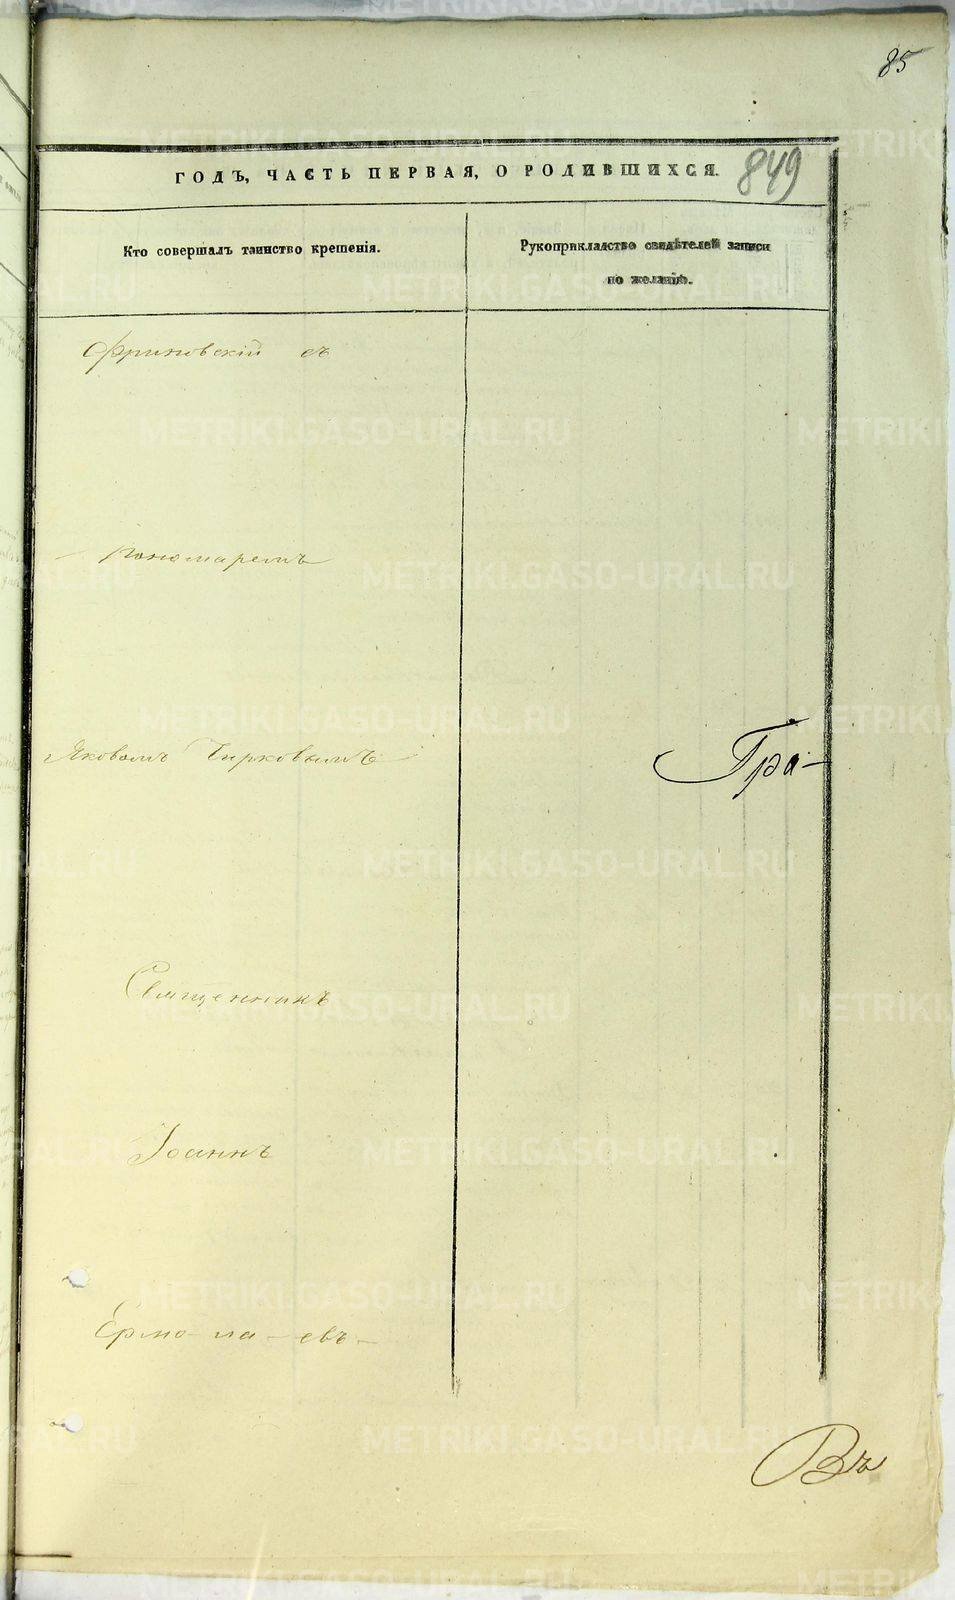 85
849
ГОДЪ, ЧАСТЬ ПЕРВАЯ, О РОДИВШИХСЯ.
Кто совершалъ таинство крещенія.
Рукоприкладство свидѣтелей записи
по желанію.
Фриновскій съ
пономаремъ
Яковомъ Чирковымъ
Гра-
Священникъ
Іоаннъ
Ермо-ла-евъ-
Въ
METRIKI.GASO-URAL.RU